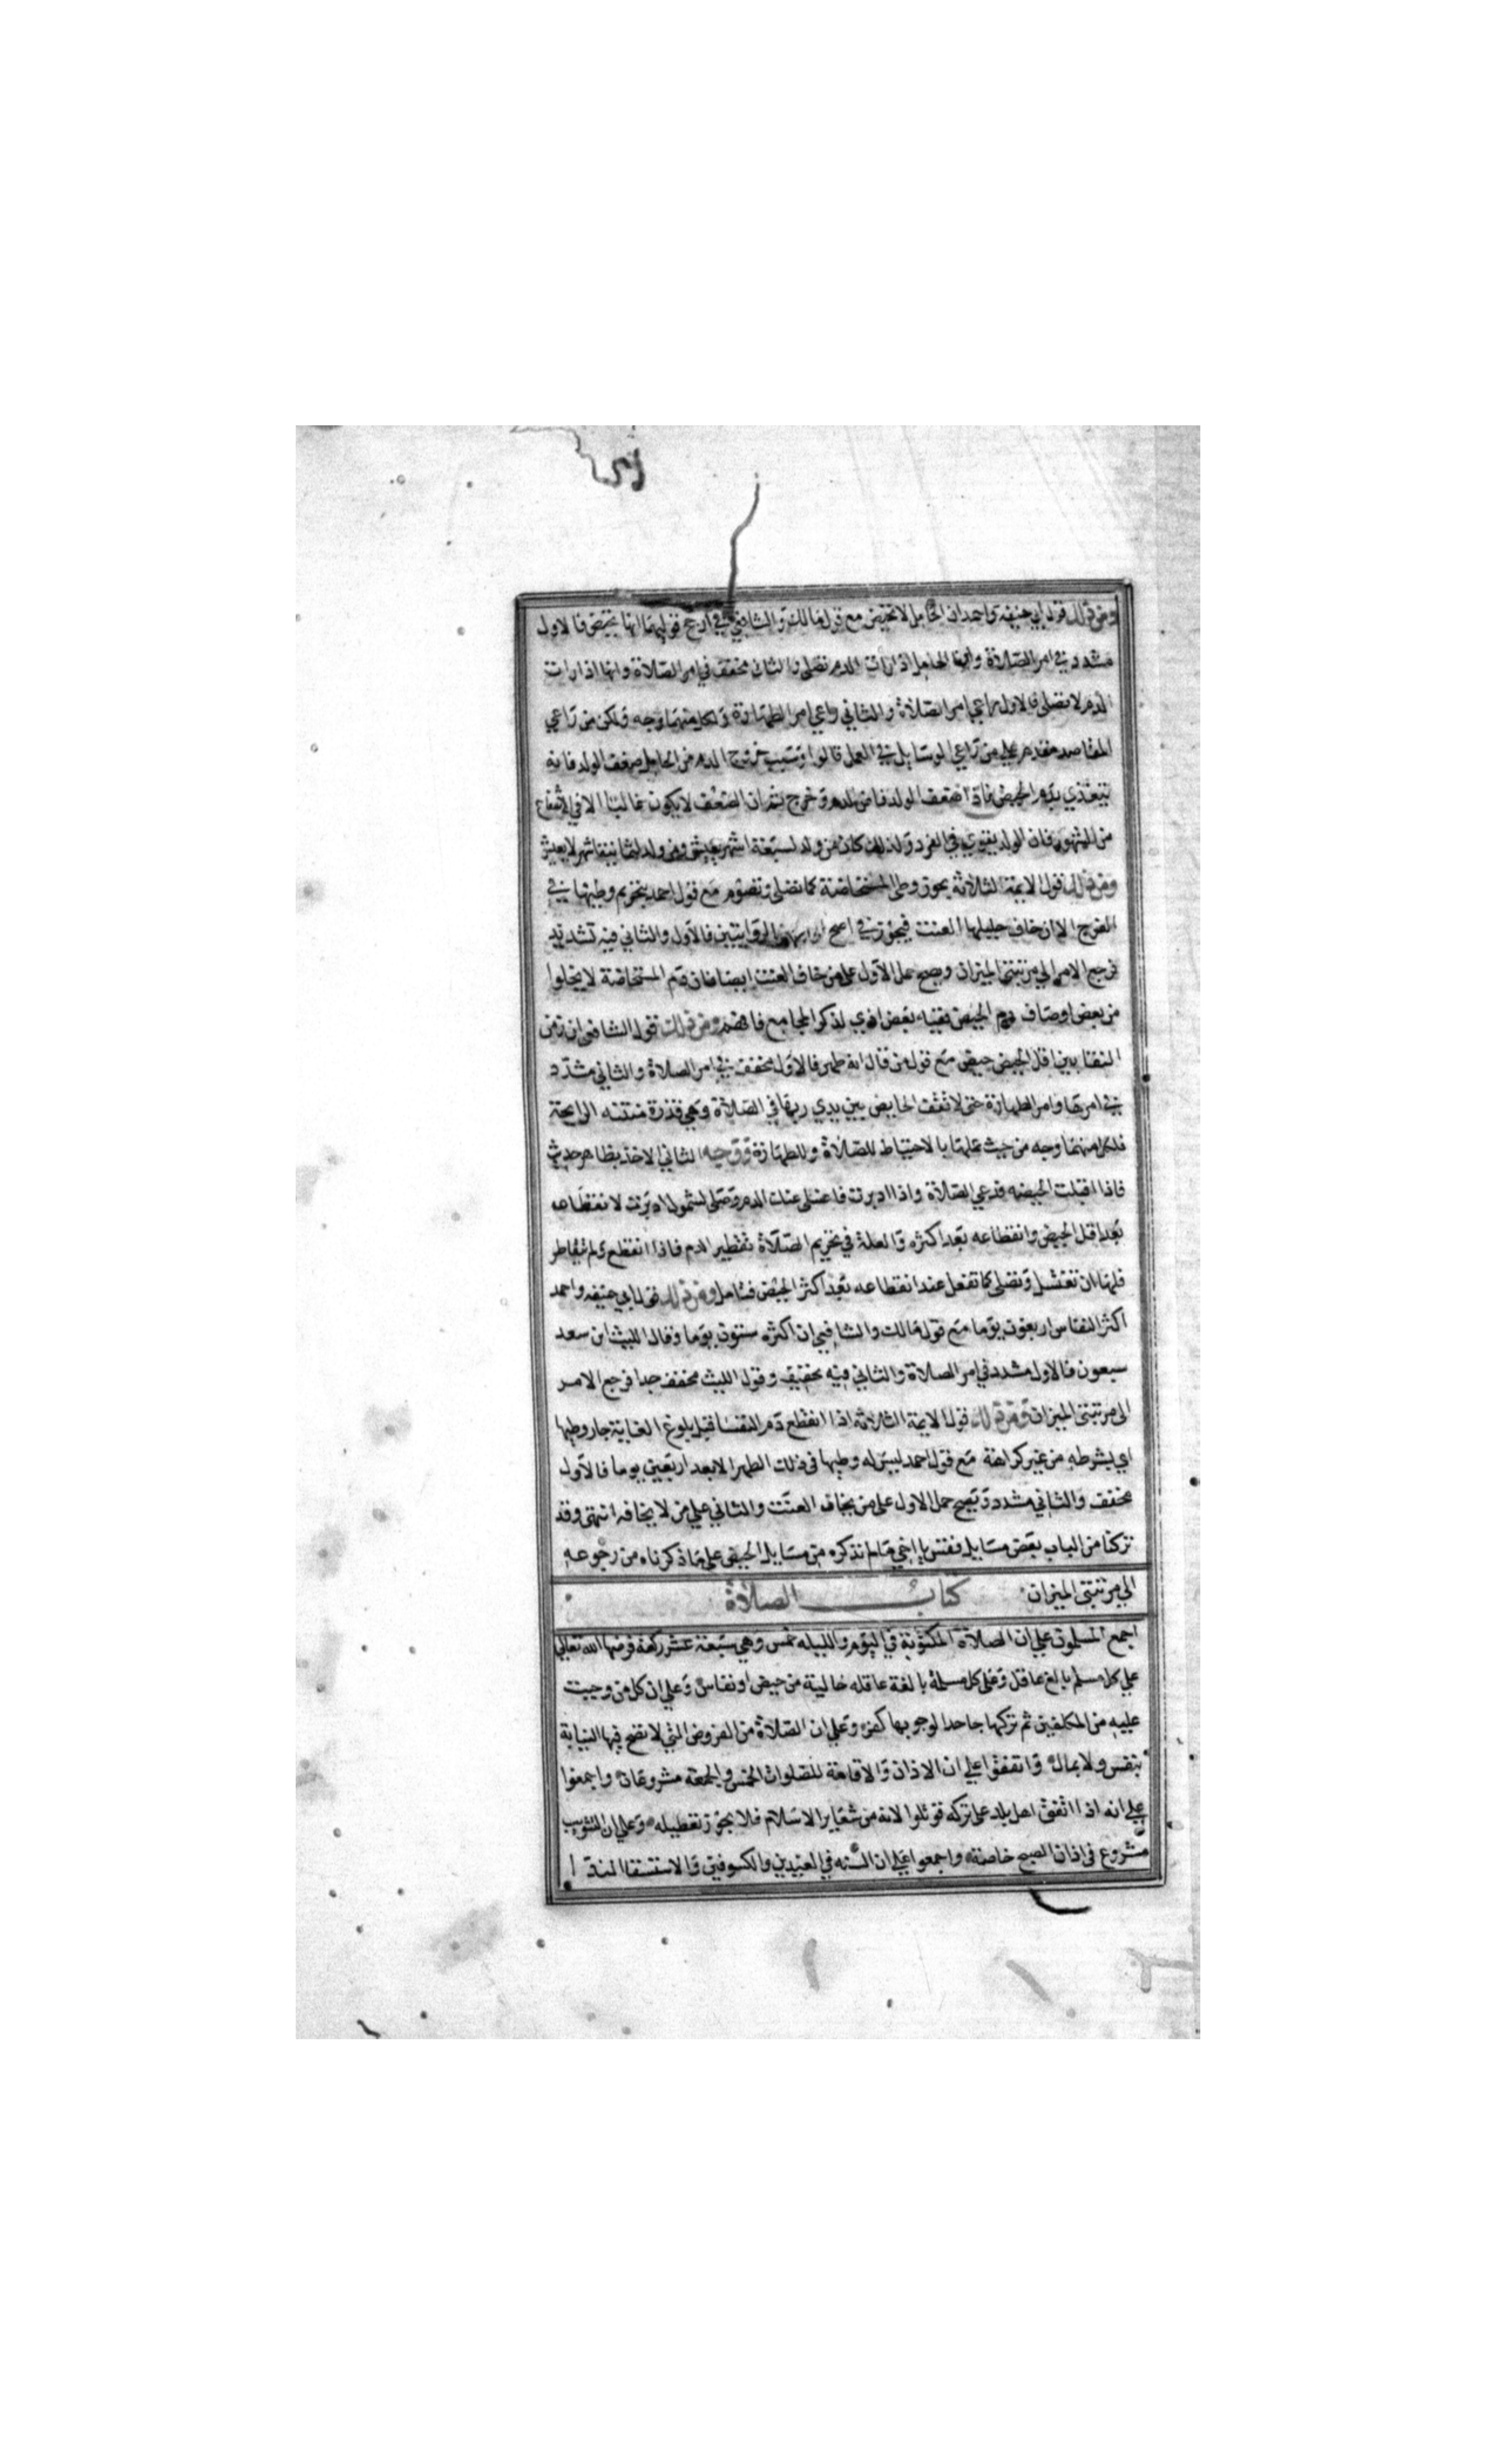 ومن ذلك قول ابي حنيفه واحمد ان الحامل لا تحيض مع قول مالك والشافعي في ارجح قوليهما انها تحيض فالاول
مشدد في امر الصلاة وان الحامل اذا رأت الدم تصلي والثاني مخفف في امر الصلاة وانها اذا رات
الدم لا تصلي فالاول راعي امر الصلاة والثاني راعي امر الطهارة ولكل منهما وجه ولكن من راعي
المقاصد مقدم علي من راعي الوسايل في العمل قالوا وسبب خروج الدم من الحامل ضعف الولد فانه
يتغذي بدم الحيض فاذا ضعف الولد فاض الدم وخرج ثم ان الضعف لا يكون غالبا الا في الاشفاع
من الشهور فان الولد يقوي في الفرد ولذلك كان من ولد لسبعة اشهر يعيش ومن ولد لثمانية اشهر لا يعيش
ومن ذلك قول الايمة الثلاثة يجوز وطي المستحاضة كما تصلي وتصوم مع قول احمد بتحريم وطيها في
الفرج الا ان خاف حليلها العنت فيجوز في اصح الروايتين فالاول والثاني فيه تشديد
فرجع الامر الي مرتبتي الميزان ويصح حمل الاول علي من خاف العنت ايضا فان دم المستحاضة لا يخلوا
من بعض اوصاف دم الحيض ففيه بعض اذي لذكر المجامع فافهم ومن ذلك قول الشافعي ان زمن
النقا بين اقل الحيض حيض مع قول من قال انه طهر فالاول مخفف في امر الصلاة والثاني مشدد
في امرها وامر الطهارة حتي لا تقف الحايض بين يدي ربها في الصلاة وهي قذرة منتنه الرايحة
فلكل منهما وجه من حيث عملها بالاحتياط للصلاة وللطهارة ووجه الثاني الاخذ بظاهر حديث
فاذا اقبلت الحيضه فدعي الصلاة واذا ادبرت فاغسلي عنك الدم وصلي لشمول ادبرت لانقطاعه
بعد اقل الحيض وانقطاعه بعد اكثره والعلة في تحريم الصلاة تقطير الدم فاذا انقطع ولم يتقاطر
فلها ان تغتسل وتصلي كما تفعل عند انقطاعه بعد اكثر الحيض فتامل ومن ذلك قول ابي حنيفه واحمد
اكثر النفاس اربعون يوما مع قول مالك والشافعي ان اكثره ستون يوما وقال الليث ابن سعد
سبعون فالاول مشدد في امر الصلاة والثاني فيه تخفيف وقول الليث مخفف جدا فرجع الامر
الي مرتبتي الميزان ومن ذلك قول الايمة الثلاثة اذا انقطع دم النفسا قبل بلوغ الغاية جاز وطيها
اي بشرطه من غير كراهة مع قول احمد ليس له وطيها في ذلك الطهر الا بعد اربعين يوما فالاول
مخفف والثاني مشدد ويصح حمل الاول علي من يخاف العنت والثاني علي من لا يخافه انتهي وقد
تركنا من الباب بعض مسايل ففتش يا اخي ما لم نذكره من مسايل الحيض علي ما ذكرناه من رجوعه
الي مرتبتي الميزان كتاب الصلاة
اجمع المسلمون علي ان الصلاة المكتوبة في اليوم والليله خمس وهي سبعة عشر ركعة فرضها الله تعالي
علي كل مسلم بالغ عاقل وعلي كل مسلمة بالغة عاقله خالية من حيض او نفاس وعلي ان كل من وجبت
عليه من المكلفين ثم تركها جاحدا لوجوبها كفر وعلي ان الصلاة من الفروض التي لا تصح فيها النيابة
بنفس ولا بمال واتفقوا علي ان الاذان والاقامة للصلوات الخمس والجمعة مشروعان واجمعوا
علي انه اذا اتفق اهل بلد علي تركه قوتلوا لانه من شعاير الاسلام فلا يجوز تعطيله وعلي ان التثويب
مشروع في اذان الصبح خاصة واجمعوا علي ان السنه في العيدين والكسوفين والاستسقا الندا